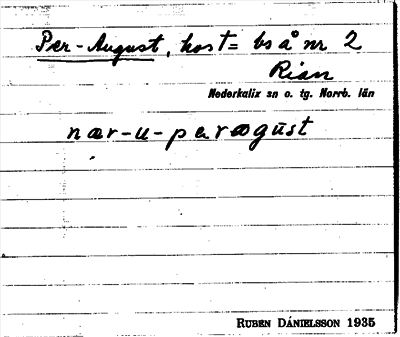 Per-August, host= bs å nr 2
Rian
Nederkalix sn o. tg. Norrb. län
nær-u-peræogūst
RUBEN DÁNIELSSON 1935